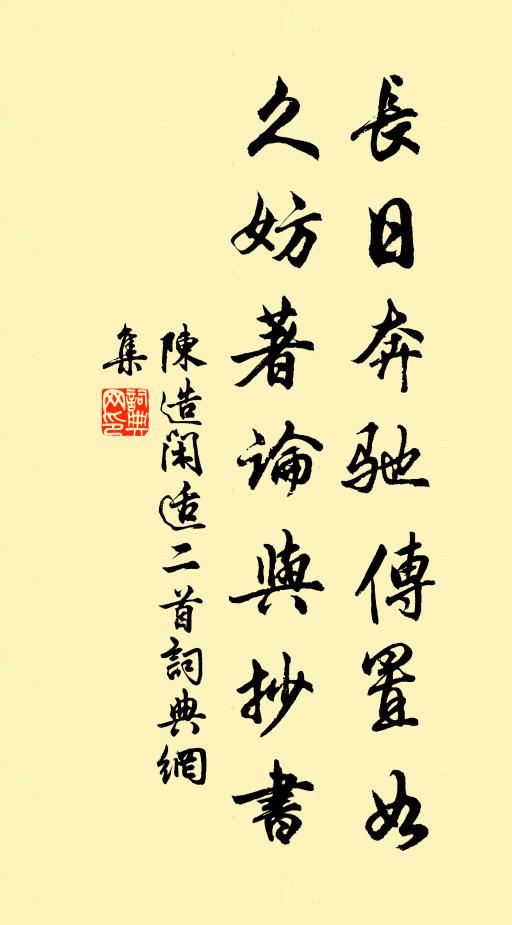 長日奔馳傳置如
久妨著論與抄書
陳造閑适二首詞典網
集
詞典
网印